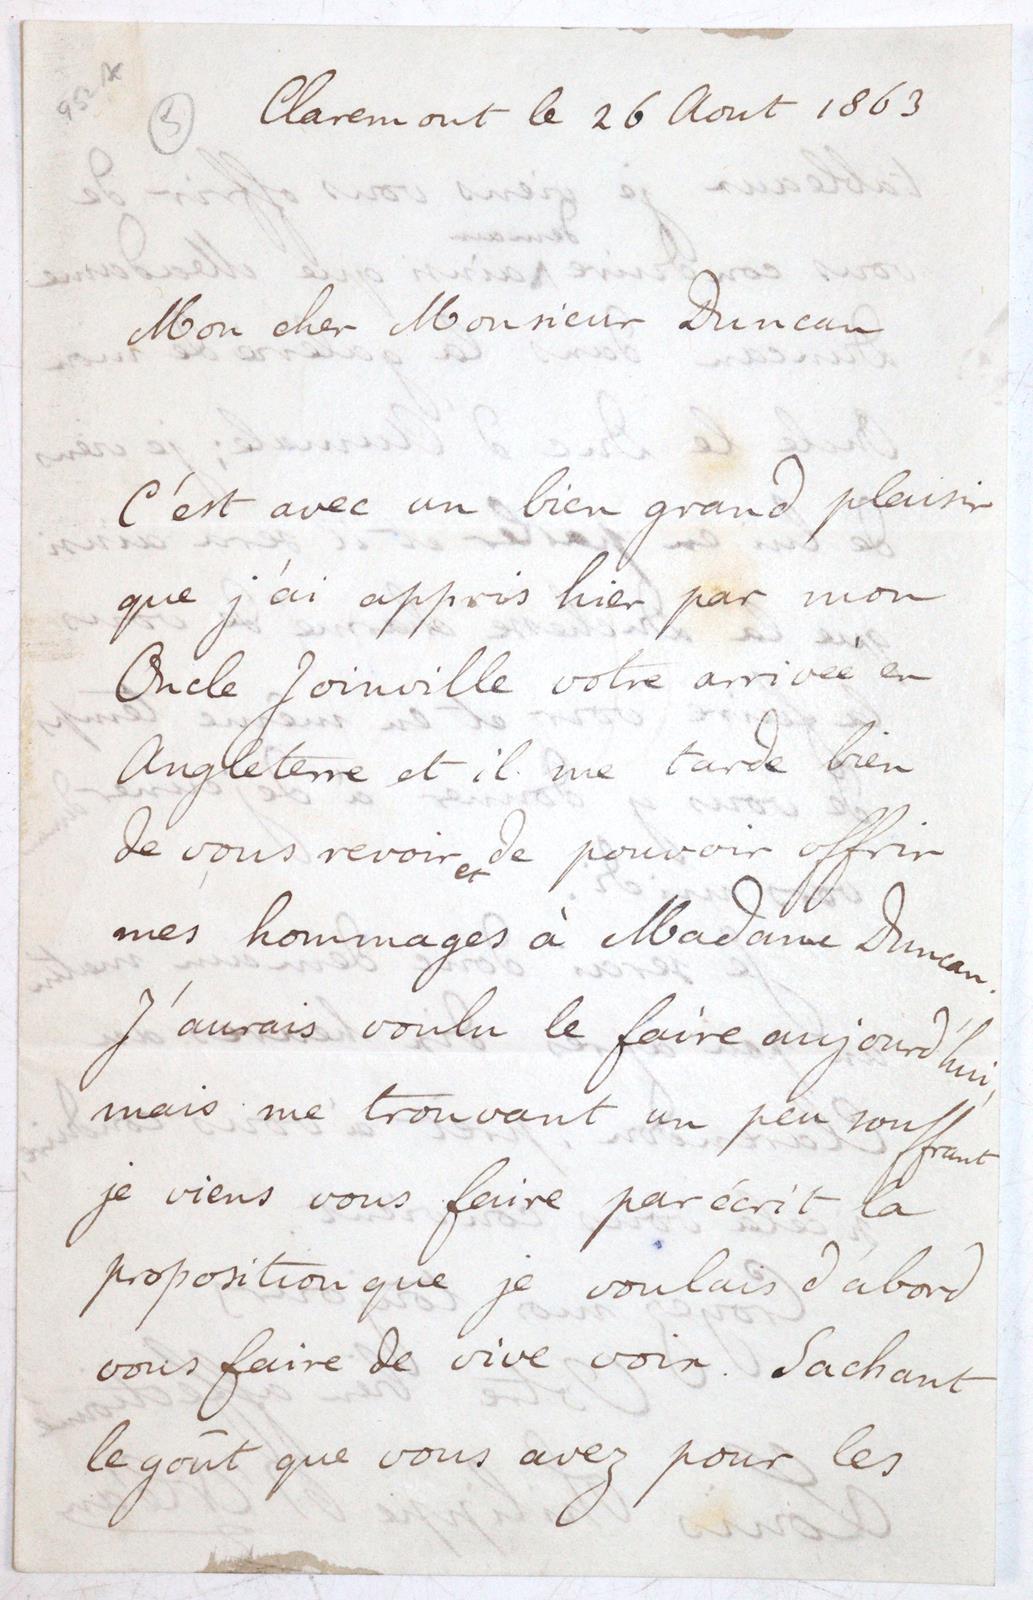 3
Claremont le 26 Aout 1863
Mon cher Monsieur Duncan
C'est avec un bien grand plaisir
que j'ai appris hier par mon
Oncle Joinville votre arrivée en
Angleterre et il me tarde bien
de vous revoir et de pouvoir offrir
mes hommages à Madame Duncan.
J'aurais voulu le faire aujourd'hui,
mais me trouvant un peu souffrant
je viens vous faire par écrit la
proposition que je voulais d'abord
vous faire de vive voir. Sachant
le goût que vous avez pour les